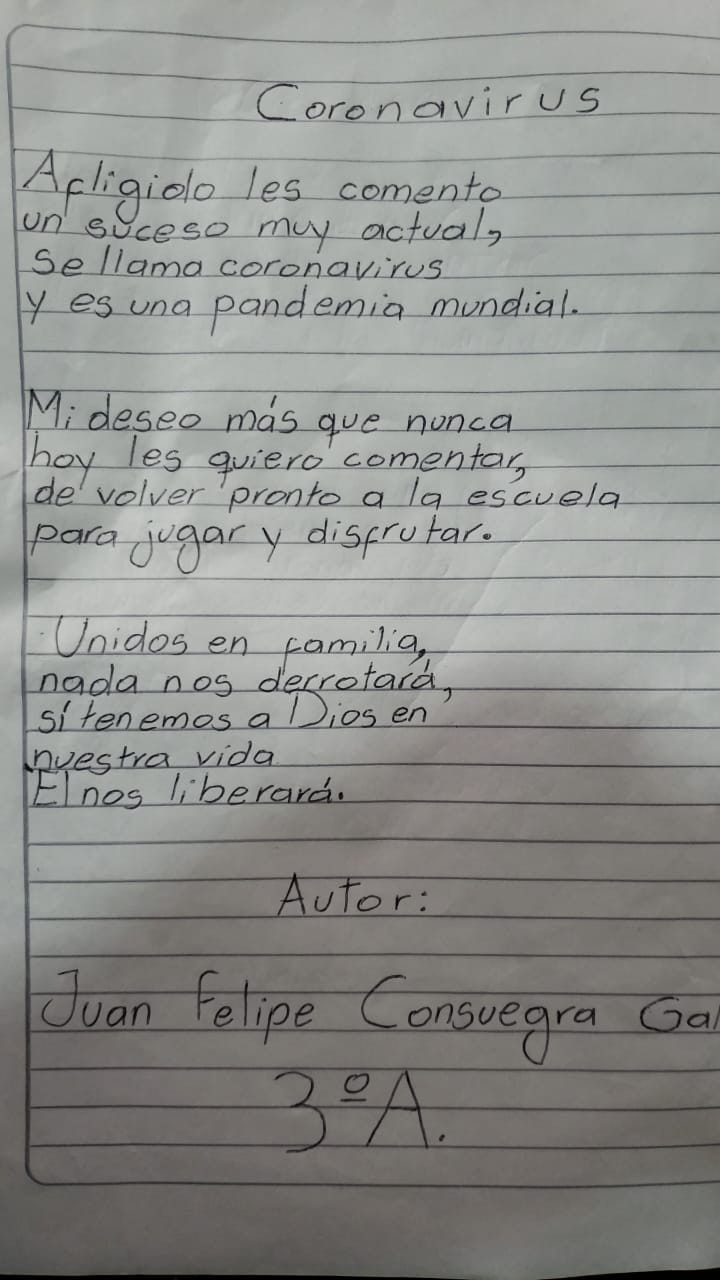 Coronavirus
Afligido les comento
un suceso muy actual,
se llama coronavirus
y es una pandemia mundial.
Mi deseo más que nunca
hoy les quiero comentar,
de volver pronto a la escuela
para jugar y disfrutar.
Unidos en familia,
nada nos derrotará,
sí tenemos a Dios en
nuestra vida
El nos liberará.
Autor:
Juan Felipe Consuegra Gal
3ºA.